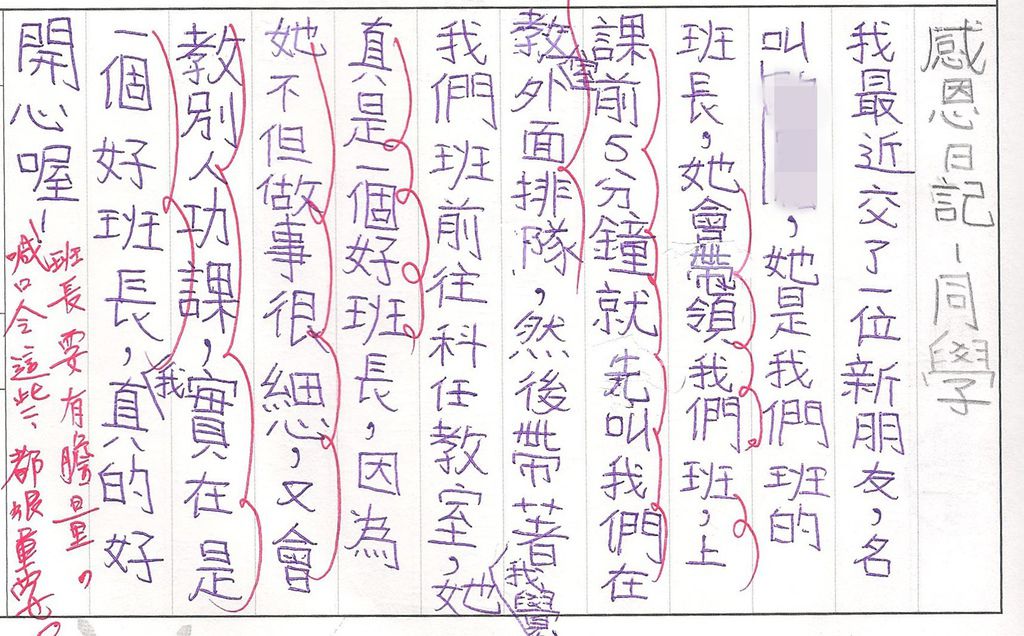 感恩日記-同學
我最近交了一位新朋友，名
叫，她是我們班的
班長，她會帶領我們班，上
課前5分鐘就先叫我們在
教室外面排隊，然後帶著
我們班前往科任教室，我覺她
真是一個好班長，因為
她不但做事很細心，又會
教別人功課，實在是
一個好班長，我真的好
開心喔！
班長要有膽量，
喊口令這些、都很重要。